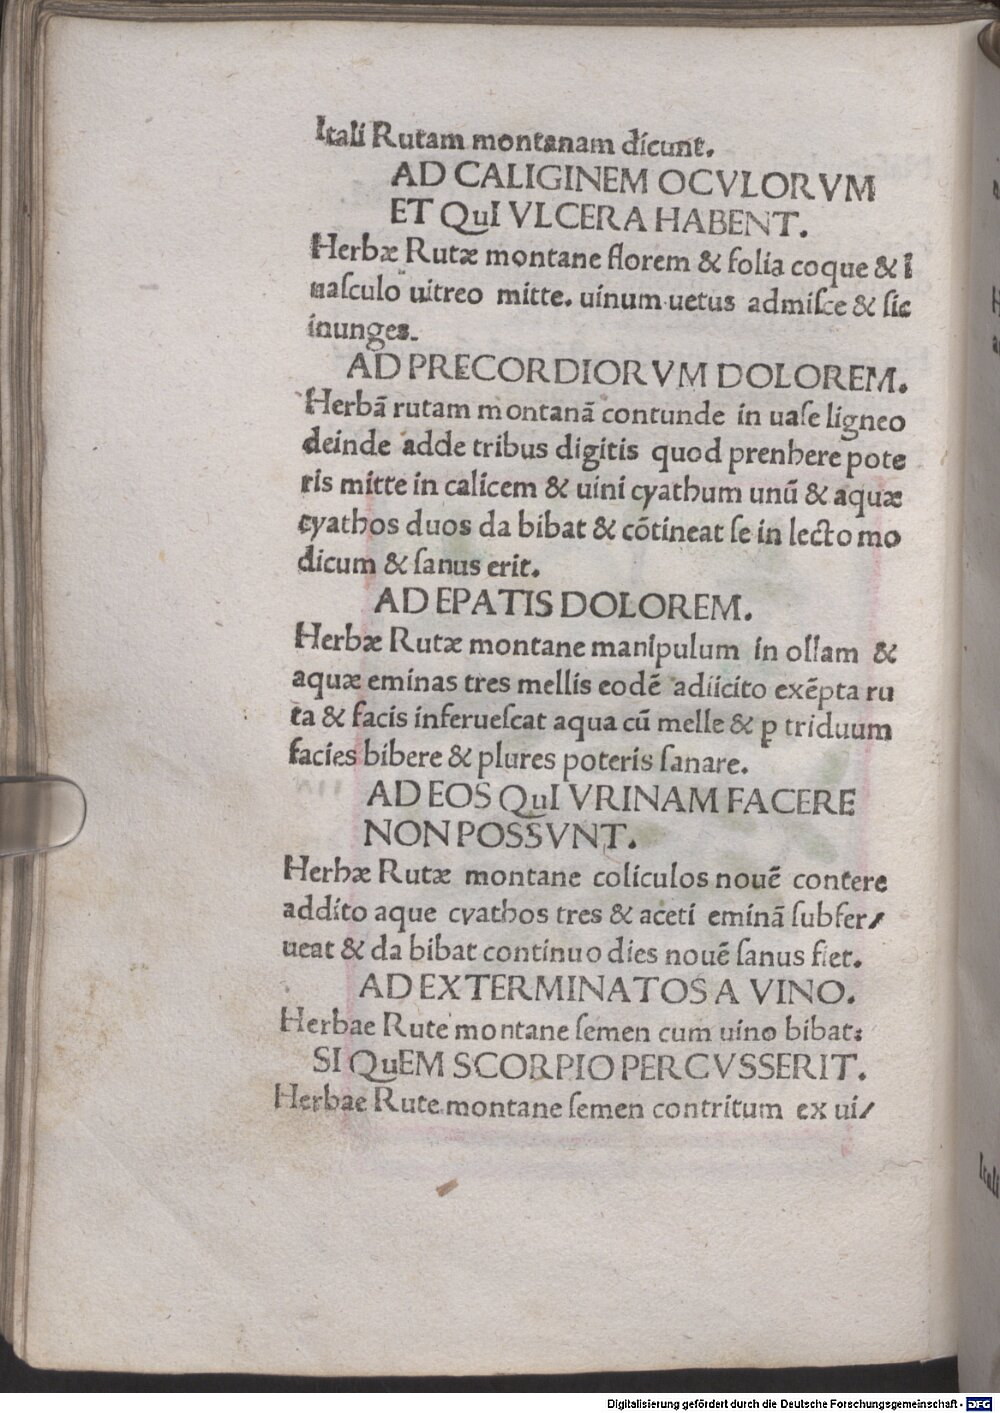 Itali Rutam montanam dicunt.
AD CALIGINEM OCVLORVM
ET QuI VLCERA HABENT.
Herbæ Rutæ montane florem & folia coque & ī
uaſculo uitreo mitte. uinum uetus admiſce & ſic
inunges.
AD PRECORDIORVM DOLOREM.
Herbā rutam montanā contunde in uaſe ligneo
deinde adde tribus digitis quod prenhere pote
ris mitte in calicem & uini cyathum unū & aquæ
cyathos duos da bibat & cōtineat ſe in lecto mo
dicum & ſanus erit.
AD EPATIS DOLOREM.
Herbæ Rutæ montane manipulum in ollam &
aquæ eminas tres mellis eodē adiicito exēpta ru
ta & facis inferueſcat aqua cū melle & ꝑ triduum
facies bibere & plures poteris ſanare.
AD EOS QuI VRINAM FACERE
NON POSSVNT.
Herbæ Rutæ montane coliculos nouē contere
addito aque cyathos tres & aceti eminā ſubfer/
ueat & da bibat continuo dies nouē ſanus fiet.
AD EXTERMINATOS A VINO.
Herbae Rute montane ſemen cum uino bibat:
SI QuEM SCORPIO PERCVSSERIT.
Herbae Rute montane ſemen contritum ex ui/
Digitalisierung gefördert durch die Deutsche Forschungsgemeinschaft - DFG